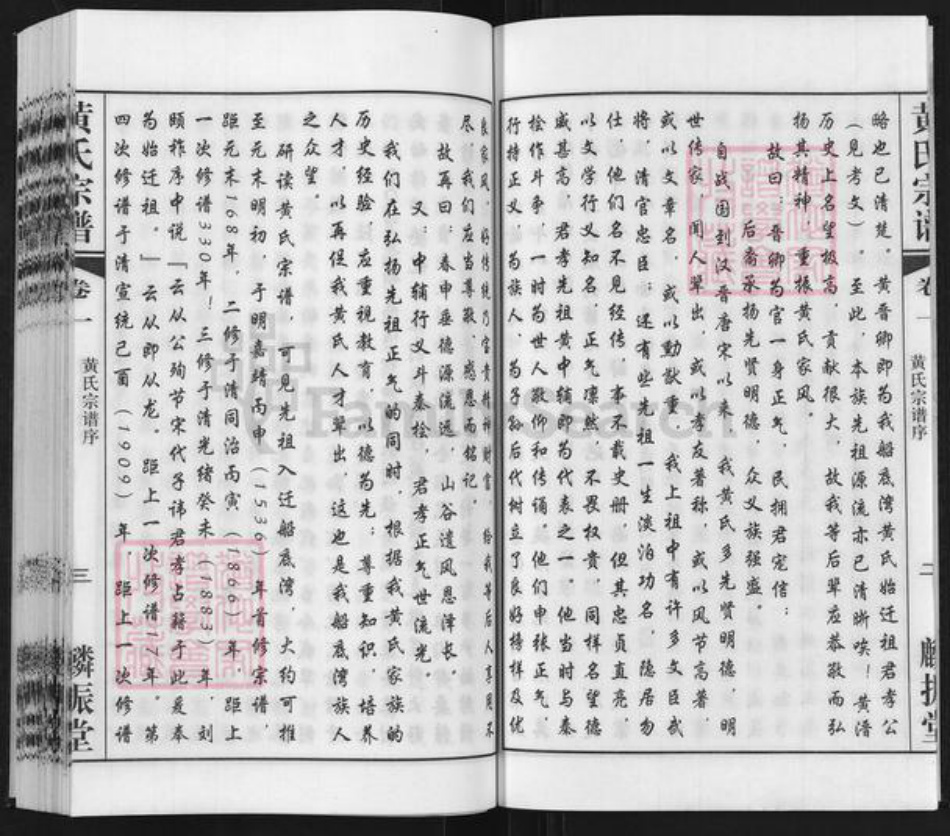 黄氏宗谱
卷一
黄氏宗谱序
二
麟振堂
略也已清楚。黄晋卿即为我船底湾黄氏始迁祖君孝公
（见考文）。至此，本族先祖源流亦已清晰唉！黄潽
历史上名望极高，贡献很大，故我等后辈应恭敬而弘
扬其精神，重振黄氏家风。
故曰：晋卿为官一身正气，民拥君宠信；
后裔承扬先贤明德，众义族强盛。
自战国到汉晋唐宋以来，我黄氏多先贤明德，明
世传家，闻人辈出，或以孝友著称，或以风节高著，
或以文章名，或以勤猷重，我上祖中有许多文臣武
将，清官忠臣；还有些先祖一生淡泊功名，隐居勿
仕，他们名不见经传，事不载史册，但其忠贞直亮，
以文学行义知名，正气凛然，不畏权贵，同样名望德
威甚高，君孝先祖黄中辅即为代表之一，他当时与秦
桧作斗争，一时为世人敬仰和传诵，他们申张正气，
行持正义，为族人、为子孙后代树立了良好榜样及优
良家风，好传统乃宝贵精神财富，给我等后人享用不
尽，我们应当尊敬、感恩而铭记。
故再曰：春申垂德源流远，山谷遗风恩泽长。
又：中辅行义斗秦桧，君孝正气世流光。
我们在弘扬先祖正气的同时，根据我黄氏家族的
历史经验，应重视教育，以德为先；尊重知识，培养
人才，以再促我黄氏人才辈出，这也是我船底湾族人
之众望。
研读黄氏宗谱，可见先祖入迁船底湾，大约可推
至元末明初，于明嘉靖丙申（1536）年首修宗谱，
距元末168年，二修于清同治丙寅（1866）年，距上
一次修谱330年！三修于清光绪癸未（1883）年，刘
颐祚序中说，「云从公殉节宋代子讳君孝占籍于此爰奉
为始迁祖。」云从即从龙。距上一次修谱17年，第
四次修谱于清宣统己酉（1909）年，距上一次修谱
黄氏宗谱
卷一
黄氏宗谱序
三
麟振堂
FamilySearch